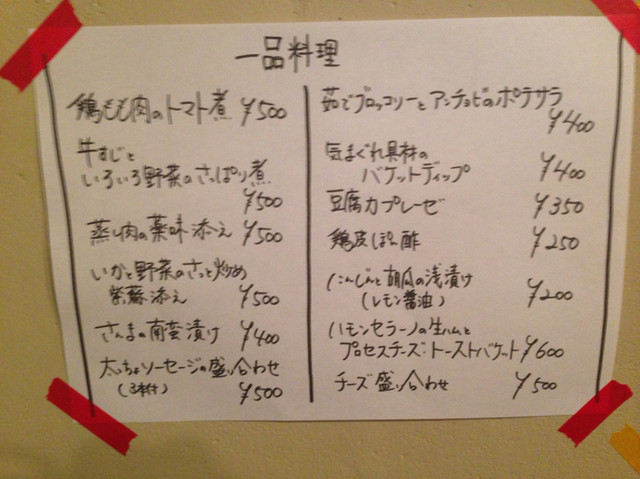 一品料理
鶏もも肉のトマト煮 ¥500
牛すじと
いろいろ野菜のさっぱり煮
¥500
蒸し肉の薬味添え ¥500
いかと野菜のさっと炒め
紫蘇添え ¥500
さんまの南蛮漬け ¥400
太っちょソーセージの盛り合わせ
(3本付) ¥500
茹でブロッコリーとアンチョビのポテサラ
¥400
気まぐれ具材の
バケットディップ ¥400
豆腐カプレーゼ ¥350
鶏皮ぽん酢 ¥250
にんじんと胡瓜の浅漬け
(レモン醤油) ¥200
ハモンセラーノの生ハムと
プロセスチーズ・トーストバケット ¥600
チーズ盛り合わせ ¥500